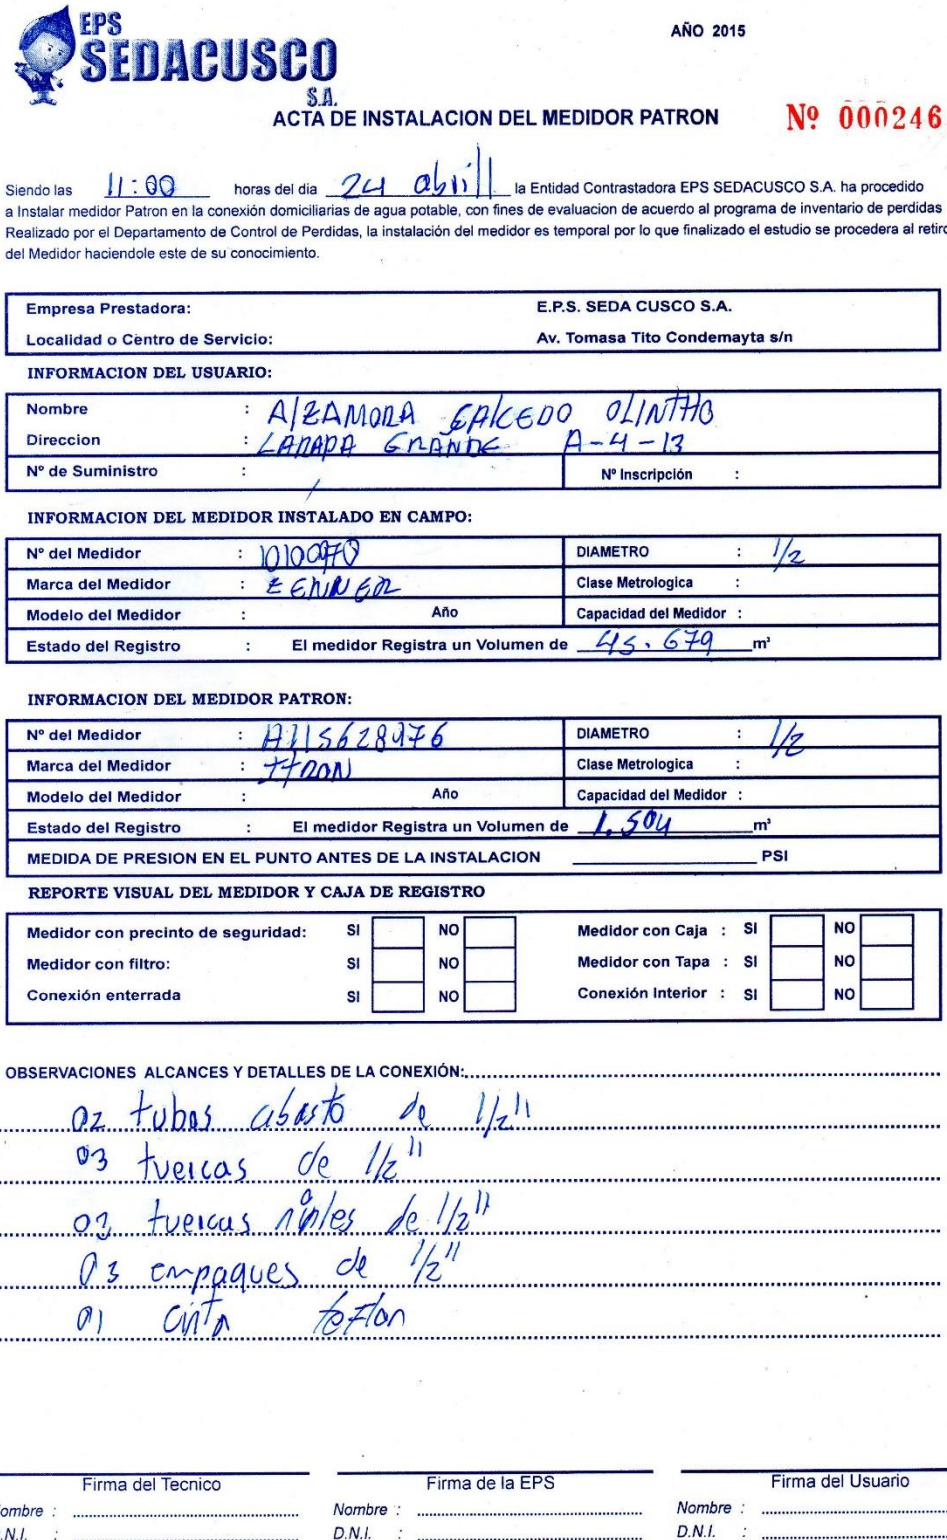 EPS
SEDACUSCO
S.A.
AÑO 2015
ACTA DE INSTALACION DEL MEDIDOR PATRON
Nº 000246
Siendo las 11:00 horas del dia 24 abril la Entidad Contrastadora EPS SEDACUSCO S.A. ha procedido
a Instalar medidor Patron en la conexión domiciliarias de agua potable, con fines de evaluacion de acuerdo al programa de inventario de perdidas
Realizado por el Departamento de Control de Perdidas, la instalación del medidor es temporal por lo que finalizado el estudio se procedera al retiro
del Medidor haciendole este de su conocimiento.
Empresa Prestadora: E.P.S. SEDA CUSCO S.A.
Localidad o Centro de Servicio: Av. Tomasa Tito Condemayta s/n
INFORMACION DEL USUARIO:
Nombre : AlZAMORA SALCEDO OLINTHO
Direccion : LARAPA GRANDE A-4-13
Nº de Suministro : Nº Inscripción :
INFORMACION DEL MEDIDOR INSTALADO EN CAMPO:
Nº del Medidor : DIAMETRO : 1/2
Marca del Medidor : ZENNER Clase Metrologica :
Modelo del Medidor : Año Capacidad del Medidor :
Estado del Registro : El medidor Registra un Volumen de 45.679 m³
INFORMACION DEL MEDIDOR PATRON:
Nº del Medidor : DIAMETRO : 1/2
Marca del Medidor : ITRON Clase Metrologica :
Modelo del Medidor : Año Capacidad del Medidor :
Estado del Registro : El medidor Registra un Volumen de 1.504 m³
MEDIDA DE PRESION EN EL PUNTO ANTES DE LA INSTALACION PSI
REPORTE VISUAL DEL MEDIDOR Y CAJA DE REGISTRO
Medidor con precinto de seguridad: SI NO Medidor con Caja : SI NO
Medidor con filtro: SI NO Medidor con Tapa : SI NO
Conexión enterrada SI NO Conexión Interior : SI NO
OBSERVACIONES ALCANCES Y DETALLES DE LA CONEXIÓN:
02 tubos abasto de 1/2"
03 tuercas de 1/2"
tuercas niples de 1/2"
03 empaques de 1/2"
01 cinta teflon
Firma del Tecnico Firma de la EPS Firma del Usuario
ombre : Nombre : Nombre :
.N.I. : D.N.I. : D.N.I. :